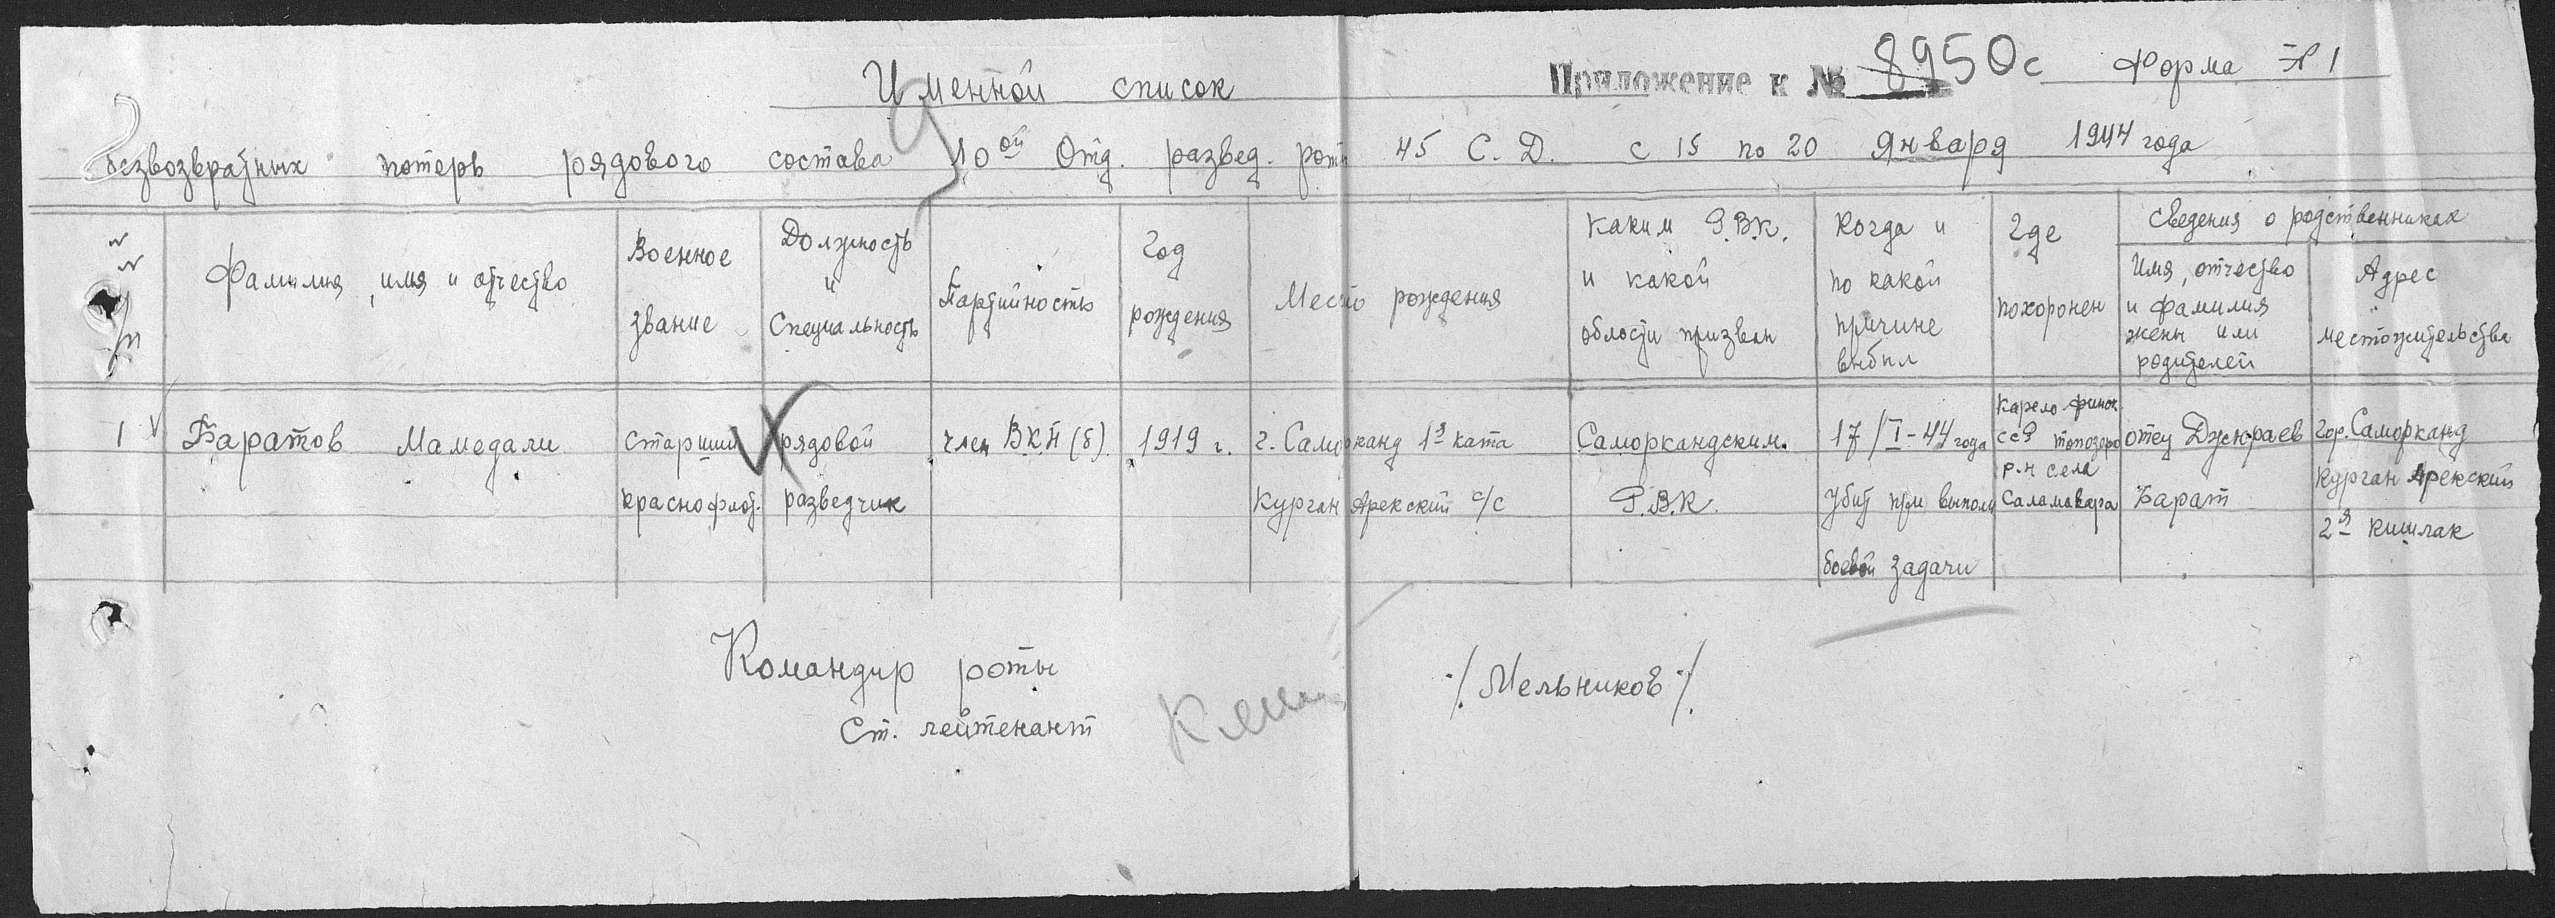 Приложение к № 8950с Форма № 1
Именной список
безвозвратных потерь рядового состава 10ой Отд. развед. роты 45 С.Д. с 15 по 20 Января 1944 года
№ № п/п
Фамилия, имя и отчество
Военное звание
Должность и Специальность
Партийность
Год рождения
Место рождения
Каким Р.В.К. и какой области призван
Когда и по какой причине выбыл
Где похоронен
Сведения о родственниках
Имя, отчество и фамилия жены или родителей
Адрес местожительства
1 Баратов Мамедали
Старший краснофлот.
рядовой разведчик
член ВКП(б).
1919 г.
г. Самарканд 1я ката
Курган Арекский с/с
Саморкандским.
Р.В.К.
17/I-44 года
Убит при выполн
боевой задачи
Карело финск
ССР
р-н села
отец Джураев
Барат
Гор. Саморканд
Курган Арекский
2я кишлак
Командир роты
Ст. лейтенант
/Мельников/